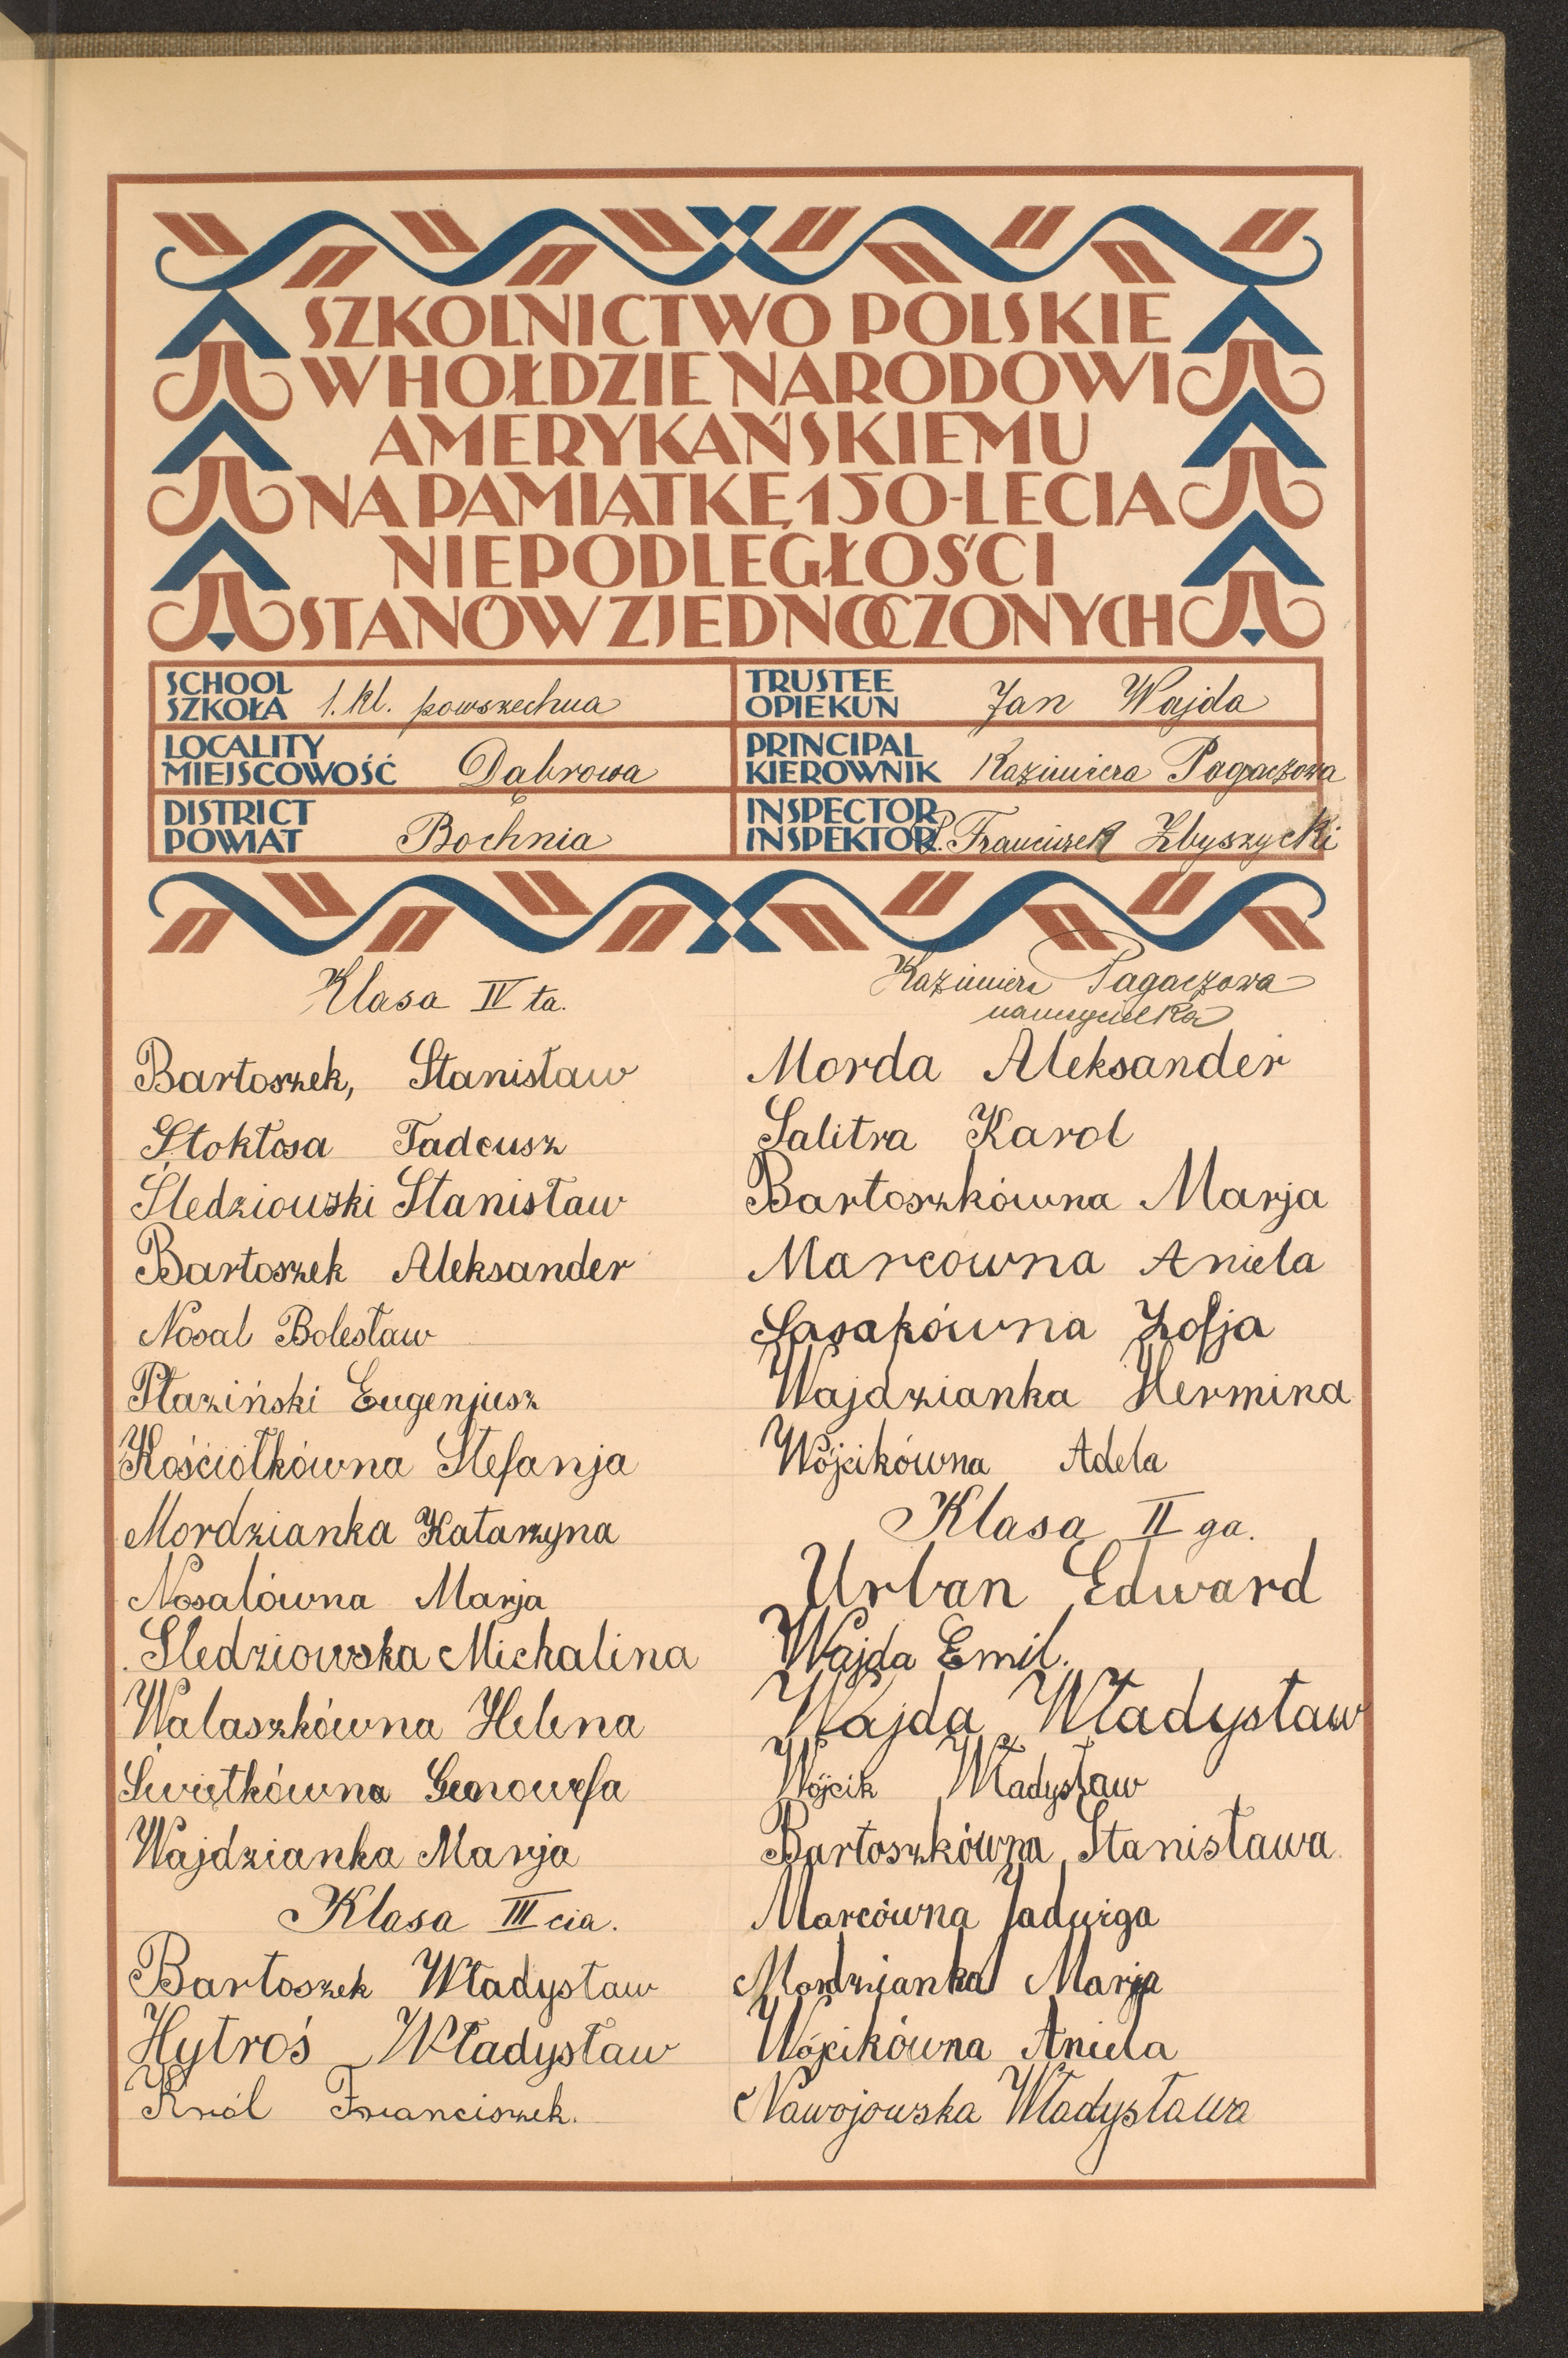 SZKOLNICTWO POLSKIE
W HOŁDZIE NARODOWI
AMERYKAŃSKIEMU
NA PAMIĄTKĘ 150-LECIA
NIEPODLEGŁOŚCI
STANÓW ZJEDNOCZONYCH
SCHOOL
SZKOŁA 1. kl. powszechna
LOCALITY
MIEJSCOWOŚĆ Dąbrowa
DISTRICT
POWIAT Bochnia
TRUSTEE
OPIEKUN Jan Wajda
PRINCIPAL
KIEROWNIK Kazimiera Pagaczowa
INSPECTOR
INSPEKTOR Franciszek Zbyszycki
Klasa IV ta.
Bartoszek, Stanisław
Stokłosa Tadeusz
Śledziowski Stanisław
Bartoszek Aleksander
Nosal Bolesław
Płaziński Eugenjusz
Kościółkówna Stefanja
Mordzianka Katarzyna
Nosalówna Marja
Śledziowska Michalina
Walaszkówna Helena
Świętkówna Genowefa
Wajdzianka Marja
Klasa III cia.
Bartoszek Władysław
Hytroś Władysław
Król Franciszek.
Kazimiera Pagaczowa
nauczycielka
Morda Aleksander
Salitra Karol
Bartoszkówna Marja
Marcowna Aniela
Sasakówna Zofja
Wajdzianka Hermina
Wójcikówna Adela
Klasa II ga.
Urban Edward
Wajda Emil.
Wajda Władysław
Wójcik Władysław
Bartoszkówna Stanisława
Marcówna Jadwiga
Mordzianka Marja
Wójcikówna Aniela
Nawojowska Władysława